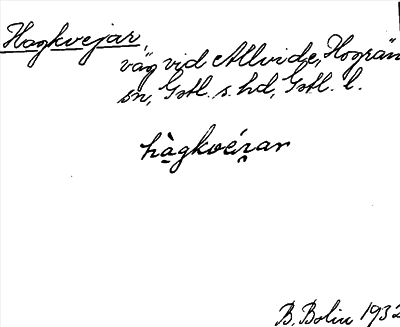 Hagkvejar,
väg vid Allvide, Hogrän
sn, Gotl. s. hd, Gotl. l.
hàgkvéɪ̯ar
B. Bolin 1932